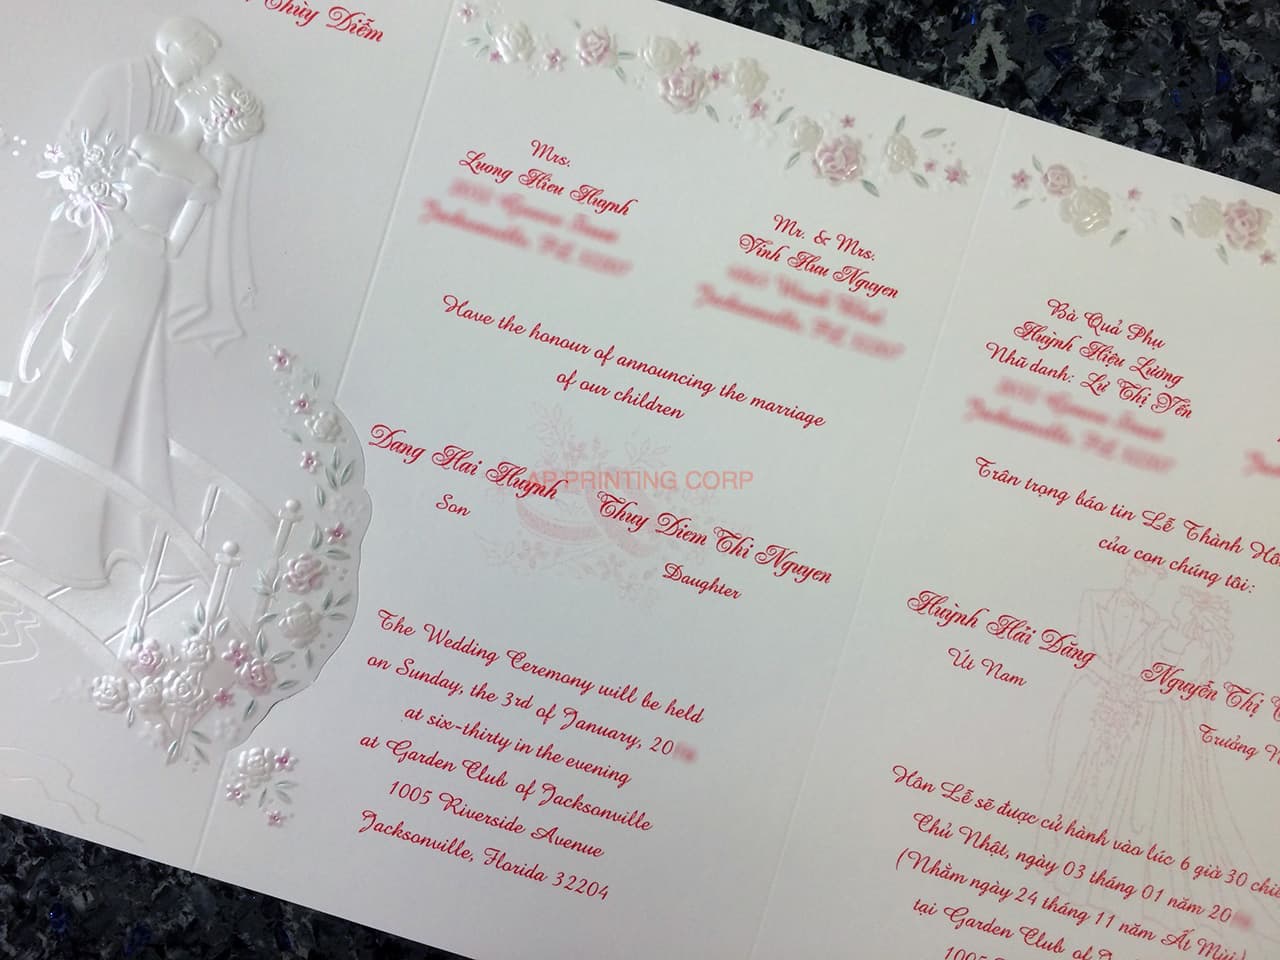 Thùy Diễm
Mrs.
Luong Hieu Huynh
Mr. & Mrs.
Vinh Huu Nguyen
Have the honour of announcing the marriage
of our children
Dang Hai Huynh
Son
Thuy Diem Thi Nguyen
Daughter
AP PRINTING CORP
The Wedding Ceremony will be held
on Sunday, the 3rd of January, 20
at six-thirty in the evening
at Garden Club of Jacksonville
1005 Riverside Avenue
Jacksonville, Florida 32204
Bà Quả Phụ
Huỳnh Hiệu Lương
Nhũ danh: Lự Thị Yến
Trân trọng báo tin Lễ Thành
của con chúng tôi:
Huỳnh Hải Dăng
Út Nam
Nguyễn Thị
Trưởng
Hôn Lễ sẽ được cử hành vào lúc 6 giờ 30
Chủ Nhật, ngày 03 tháng 01 năm 20
(Nhằm ngày 24 tháng 11 năm Ất Mùi)
tại Garden Club of
1005